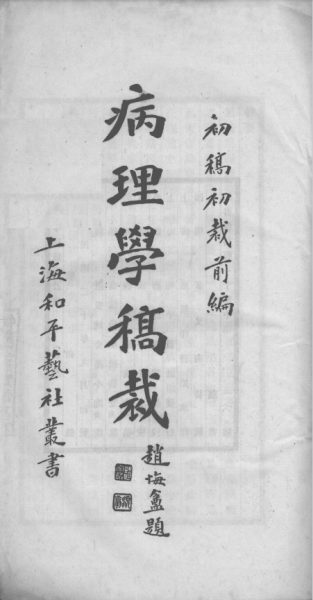 初稿初裁前編
病理學稿裁
趙悔盦題
上海和平藝社叢書